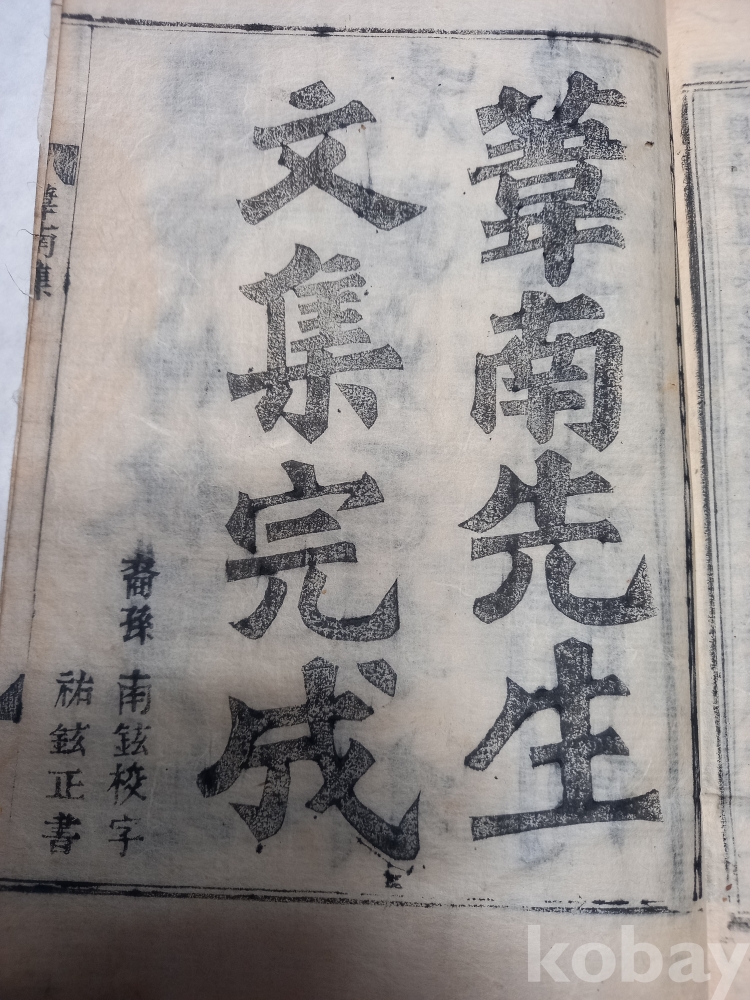 葦南先生
文集完成
裔孫 南鉉校字
祐鉉正書
葦南集
kobay